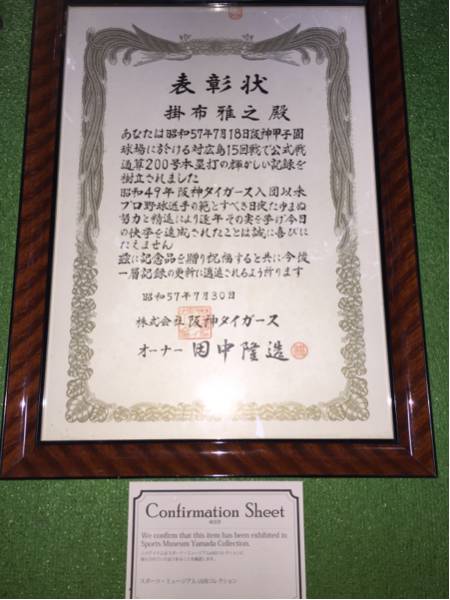 表彰状
掛布雅之殿
あなたは昭和57年7月18日阪神甲子園
球場に於ける対広島15回戦で公式戦
通算200号本塁打の輝かしい記録を
樹立されました
昭和49年阪神タイガース入団以来
プロ野球選手の範とすべき日夜たゆまぬ
努力と精進により逐年その実を挙げ今日
の快挙を達成されたことは誠に喜びに
たえません
茲に記念品を贈り祝福すると共に今後
一層記録の更新に邁進されるよう祈ります
昭和57年7月30日
株式会社阪神タイガース
オーナー 田中隆造
Confirmation Sheet
We confirm that this item has been exhibited in
Sports Museum Yamada Collection.
スポーツ・ミュージアム山田コレクション